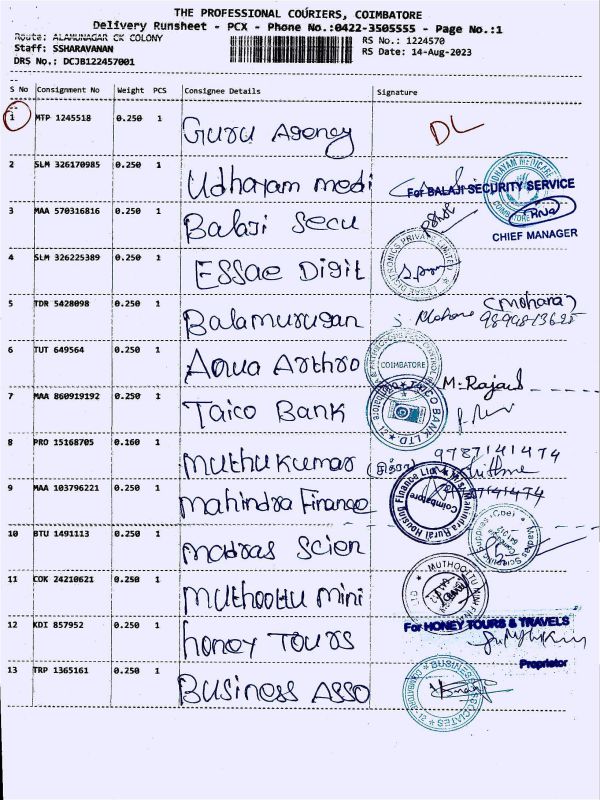 THE PROFESSIONAL COURIERS, COIMBATORE
Delivery Runsheet - PCX - Phone No.:0422-3505555 - Page No.:1
Route: ALAMUNAGAR CK COLONY
RS No.: 1224570
Staff: SSHARAVANAN
RS Date: 14-Aug-2023
DRS No,: DCJB122457001
S No Consignment No Weight PCS Consignee Details Signature
1 MTP 1245518 0.250 1 Guru Agency DL
2 SLM 326170985 0.250 1 Udhayam medi
For BALAJI SECURITY SERVICE
3 MAA 570316816 0.250 1 Balaji Secu
CHIEF MANAGER
4 SLM 326225389 0.250 1 ESSAE Digit
5 TDR 5428098 0.250 1 Balamurugan (Mohana)
6 TUT 649564 0.250 1 Aqua Arthro COIMBATORE
M. Rajaid
7 MAA 860919192 0.250 1 Taico Bank TAICO BANK LTD
8 PRO 15168705 0.160 1 muthukumar 9787141474
9 MAA 103796221 0.250 1 mahindra Finance Mahindra Rural Housing Finance Coimbatore
10 BTU 1491113 0.250 1 madras Scien
11 COK 24210621 0.250 1 muthoottu mini
12 KDI 857952 0.250 1 honey Tours For HONEY TOURS & TRAVELS
Proprietor
13 TRP 1365161 0.250 1 Business Asso